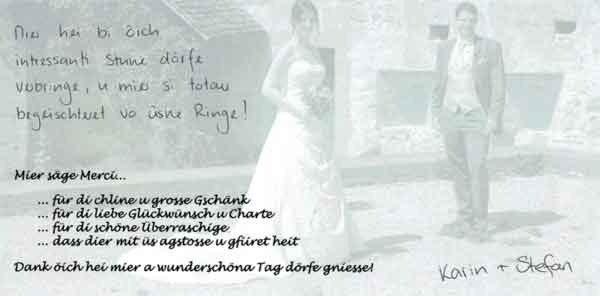 Mier hei bi öich
intressanti Stune dörfe
verbringe, u mier si total
begeischteret vo üsne Ringe!
Mier säge Merci...
... für di chline u grosse Gschänk
... für di liebe Glückwünsch u Charte
... für di schöne Überraschige
... dass dier mit üs agstosse u gfiiret heit
Dank öich hei mier a wunderschöna Tag dörfe gniesse!
Karin + Stefan